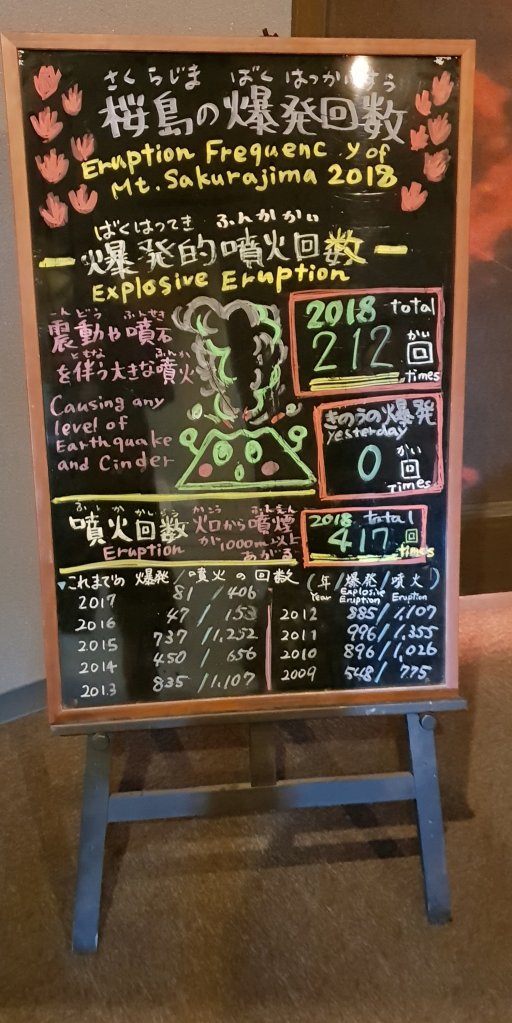 さくらじま ばくはっかいすう
桜島の爆発回数
Eruption Frequenc y of
Mt. Sakurajima 2018
ばくはつてき ふんかかい
爆発的噴火回数
Explosive Eruption
しんどう ふんせき
震動や噴石
ともな ふんか
を伴う大きな噴火
Causing any
level of
Earthquake
and Cinder
2018 total
212 かい
回
times
きのうの爆発
yesterday
0 かい
回
Times
ふんかかいすう
噴火回数
Eruption
かこう ふんえん
火口から噴煙
が1000m以上
あがる
2018 total
417 回
times
これまでの 爆発/噴火の回数 (年/爆発/噴火)
Year Explosive Eruption Eruption
2017 81 / 406
2016 47 / 153
2015 737 / 1,252
2014 450 / 656
2013 835 / 1,107
2012 885 / 1,107
2011 996 / 1,355
2010 896 / 1,026
2009 548 / 775